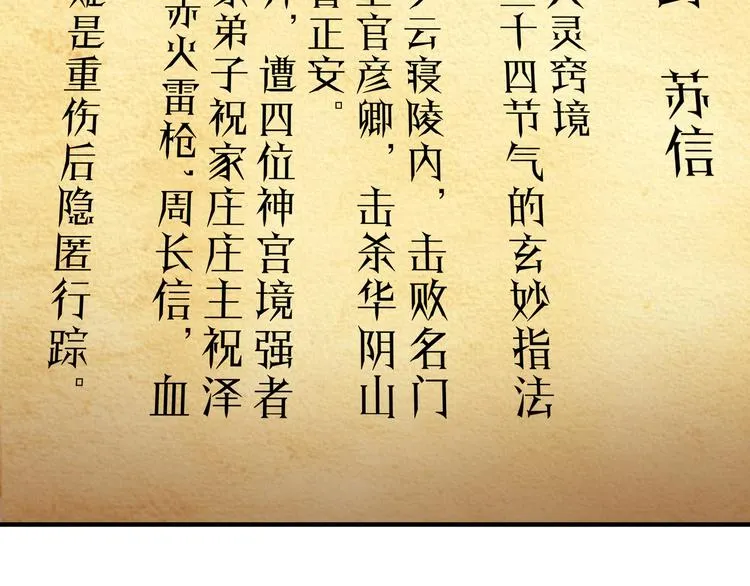 苏信
灵窍境
十四节气的玄妙指法
云寝陵内，击败名门
官彦卿，击杀华阴山
正安。
，遭四位神宫境强者
弟子祝家庄庄主祝泽
赤火雷枪、周长信，血
是重伤后隐匿行踪。